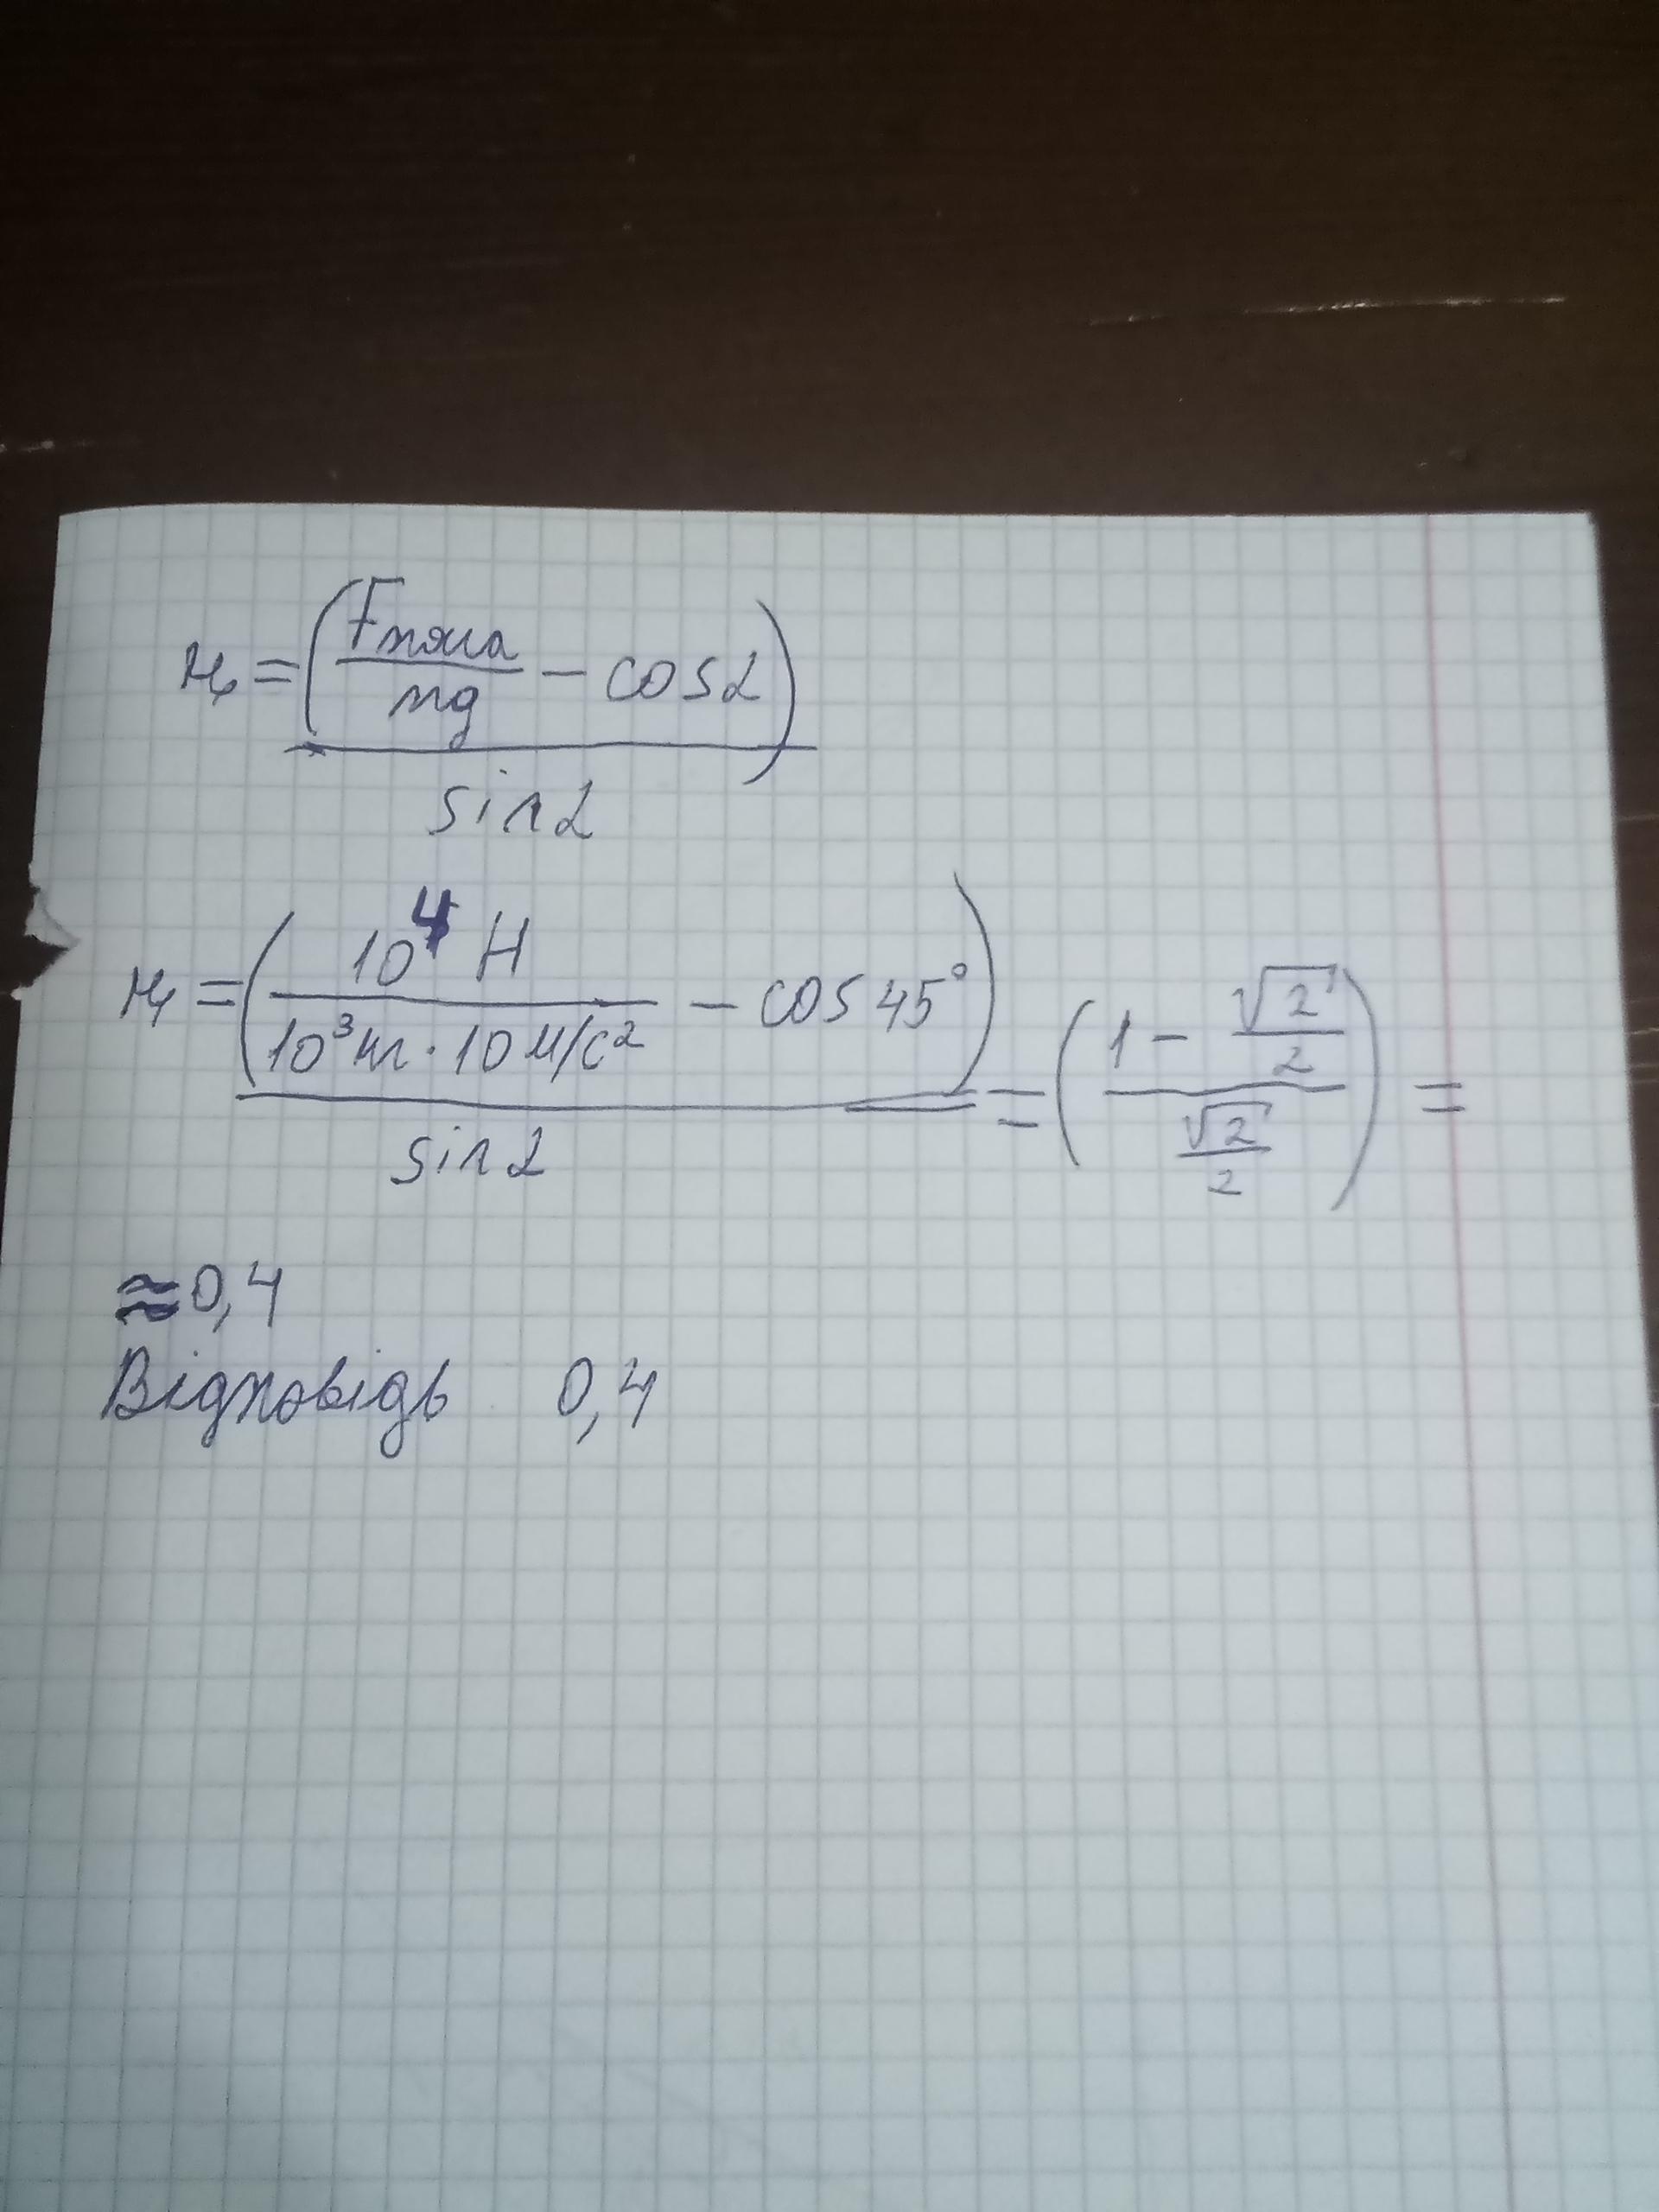 μ = (Fтяги/mg − cosα)/sinα
μ = (10⁴ Н/10³кг · 10 м/с² − cos 45°)/sinα = (1 − √2/2 / √2/2) =
≈ 0,4
Відповідь 0,4